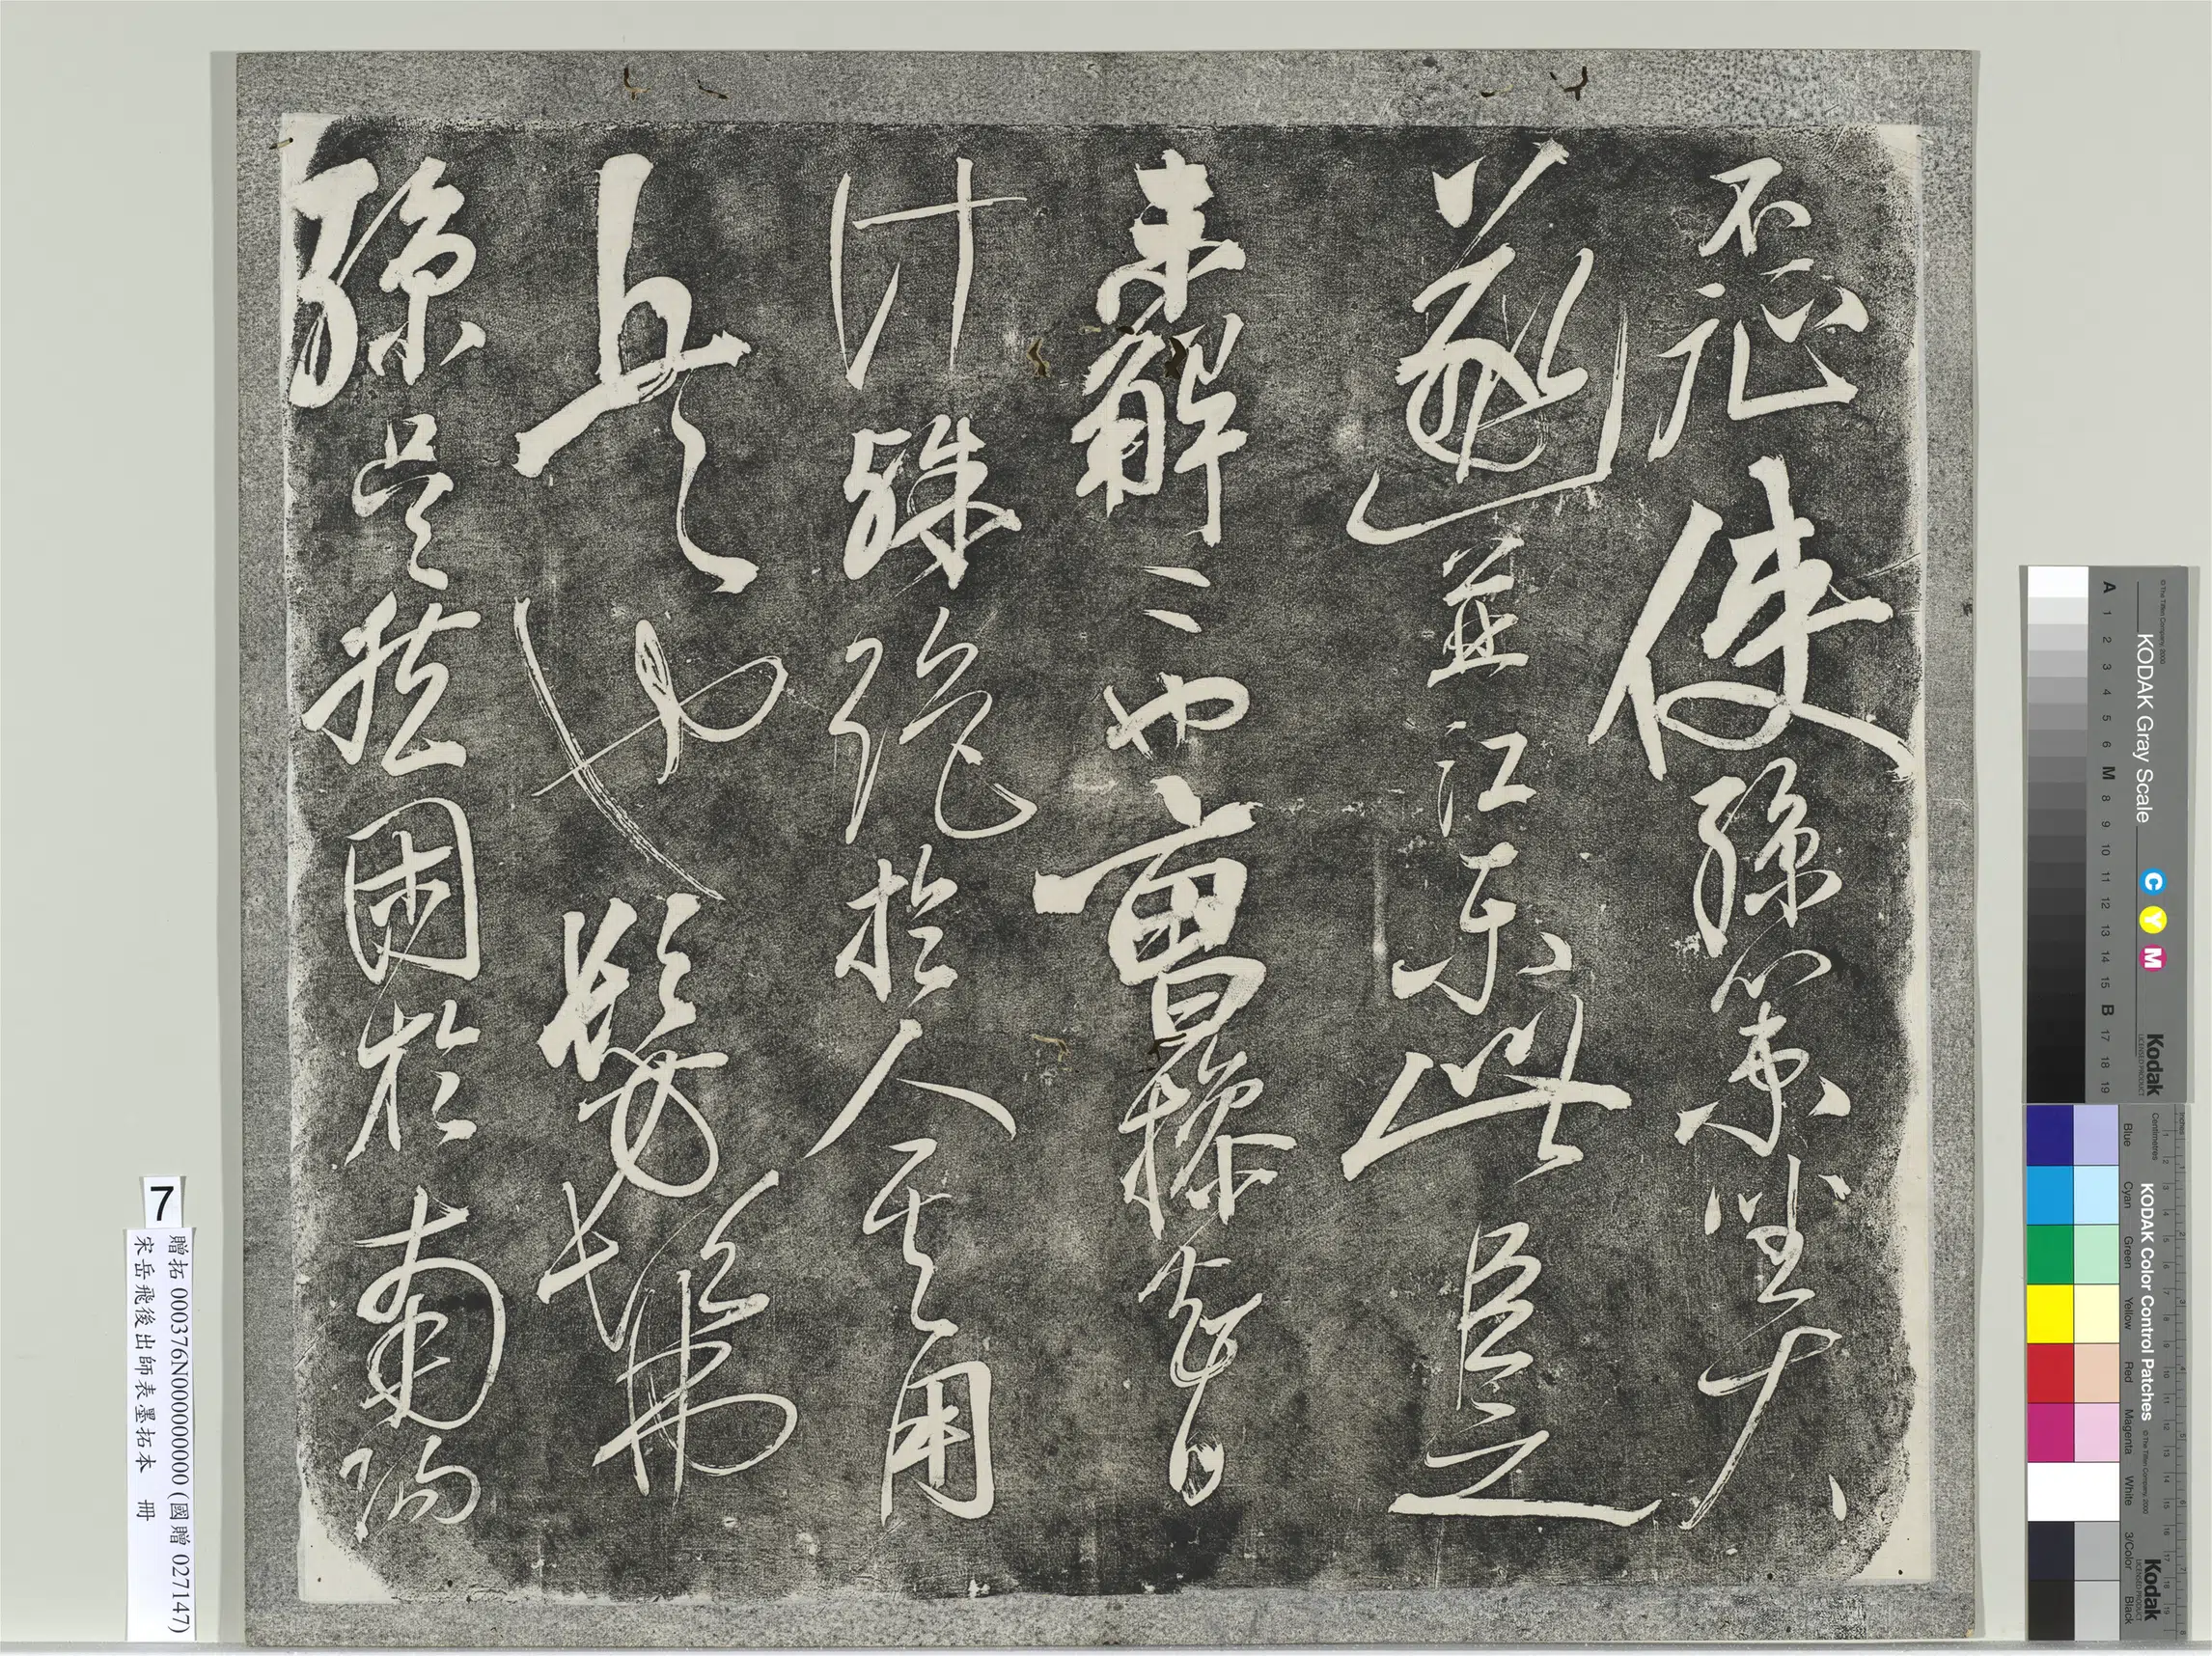 不征使孫策坐大
遂並江東此臣之
未解二也曹操智
計殊絕於人其用
兵也髣髴
孫吳然困於南陽
7
贈拓 000376N000000000 (國贈 027147)
宋岳飛後出師表墨拓本 冊
KODAK Gray Scale
A 1 2 3 4 5 6 M 8 9 10 11 12 13 14 15 B 17 18 19
C Y M
Kodak
LICENSED PRODUCT
© The Tiffen Company, 2000
KODAK Color Control Patches
© The Tiffen Company, 2000
Blue Cyan Green Yellow Red Magenta White 3/Color Black
Centimetres
Inches
Kodak
LICENSED PRODUCT